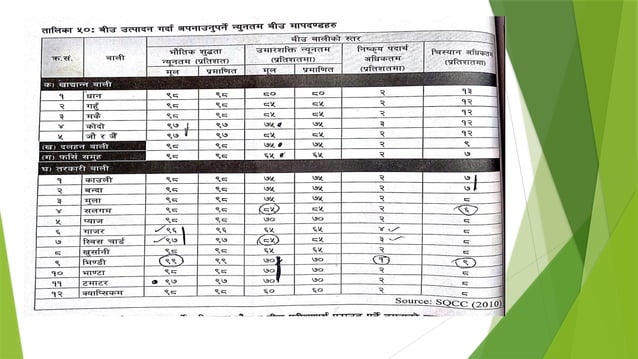 तालिका ५०: बीउ उत्पादन गर्दा अपनाउनुपर्ने न्यूनतम बीउ मापदण्डहरु
बीउ बालीको स्तर
क्र.सं. बाली भौतिक शुद्धता न्यूनतम (प्रतिशत) उमारशक्ति न्यूनतम (प्रतिशतमा) निष्कृय पदार्थ अधिकतम (प्रतिशतमा) चिस्यान अधिकतम (प्रतिशतमा)
मूल प्रमाणित मूल प्रमाणित
क) खाद्यान्न बाली
१ धान ९८ ९८ ८० ८० २ १३
२ गहुँ ९८ ९८ ८५ ८५ २ १२
३ मकै ९८ ९८ ८५ ८५ २ १२
४ कोदो ९७ ९७ ७५ ७५ ३ १२
५ जौ र जै ९७ ९७ ८५ ८५ २ १२
(ख) दलहन बाली ९८ ९८ ७५ ७५ २ ९
(ग) फर्सि समूह ९८ ९८ ६५ ६५ २ ७
घ) तरकारी बाली
१ काउली ९८ ९८ ७५ ७५ २ ७
२ बन्दा ९८ ९८ ७५ ७५ २ ७
३ मुला ९८ ९८ ७५ ७५ २ ८
४ सलगम ९८ ९८ ८५ ८५ २ ६
५ प्याज ९८ ९८ ७० ७० २ ८
६ गाजर ९६ ९६ ६५ ६५ ४ ८
७ स्विस चार्ड ९७ ९७ ८५ ८५ ३ ८
८ खुर्सानी ९८ ९८ ६५ ६५ २ ८
९ भिण्डी ९९ ९९ ७० ७० १ ९
१० भाण्टा ९८ ९८ ७० ७० २ ८
११ टमाटर ९७ ९७ ७० ७० २ ८
१२ क्याप्सिकम ९८ ९८ ६० ६० २ ८
Source: SQCC (2010)